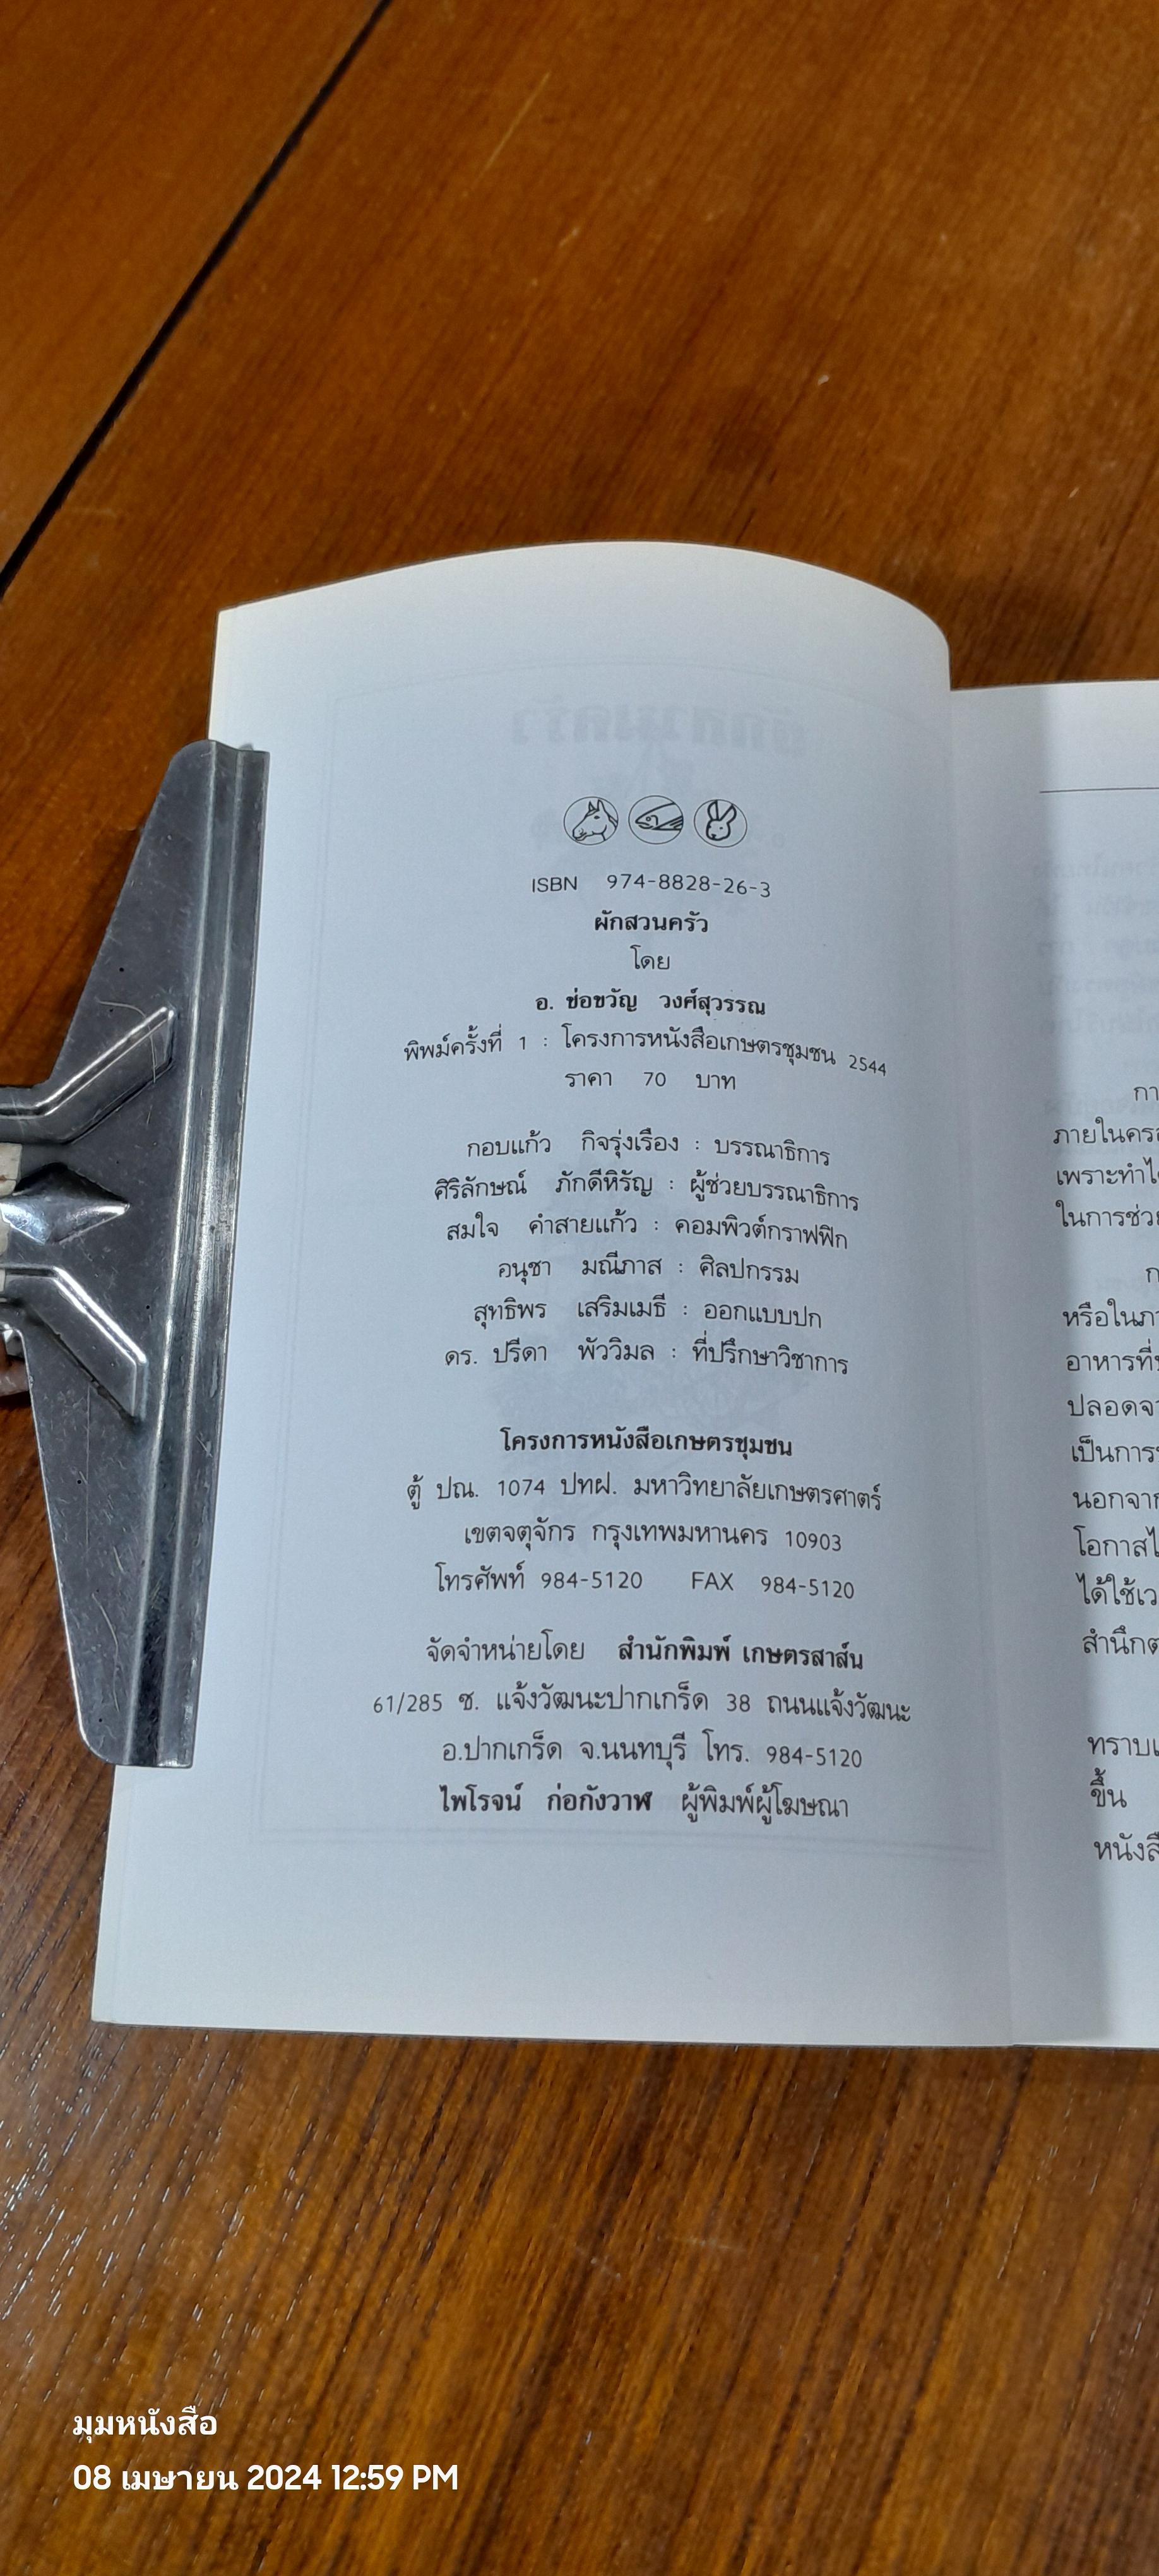 ISBN 974-8828-26-3
ผักสวนครัว
โดย
อ. ช่อขวัญ วงศ์สุวรรณ
พิพม์ครั้งที่ 1 : โครงการหนังสือเกษตรชุมชน 2544
ราคา 70 บาท
กอบแก้ว กิจรุ่งเรือง : บรรณาธิการ
ศิริลักษณ์ ภักดีหิรัญ : ผู้ช่วยบรรณาธิการ
สมใจ คำสายแก้ว : คอมพิวต์กราฟฟิก
อนุชา มณีภาส : ศิลปกรรม
สุทธิพร เสริมเมธี : ออกแบบปก
ดร. ปรีดา พัววิมล : ที่ปรึกษาวิชาการ
โครงการหนังสือเกษตรชุมชน
ตู้ ปณ. 1074 ปทฝ. มหาวิทยาลัยเกษตรศาตร์
เขตจตุจักร กรุงเทพมหานคร 10903
โทรศัพท์ 984-5120 FAX 984-5120
จัดจำหน่ายโดย สำนักพิมพ์ เกษตรสาส์น
61/285 ซ. แจ้งวัฒนะปากเกร็ด 38 ถนนแจ้งวัฒนะ
อ.ปากเกร็ด จ.นนทบุรี โทร. 984-5120
ไพโรจน์ ก่อกังวาฬ ผู้พิมพ์ผู้โฆษณา
เพราะทำได้
ในการช่วย
อาหารที่
เป็นการ
นอกจาก
ขึ้น
มุมหนังสือ
08 เมษายน 2024 12:59 PM